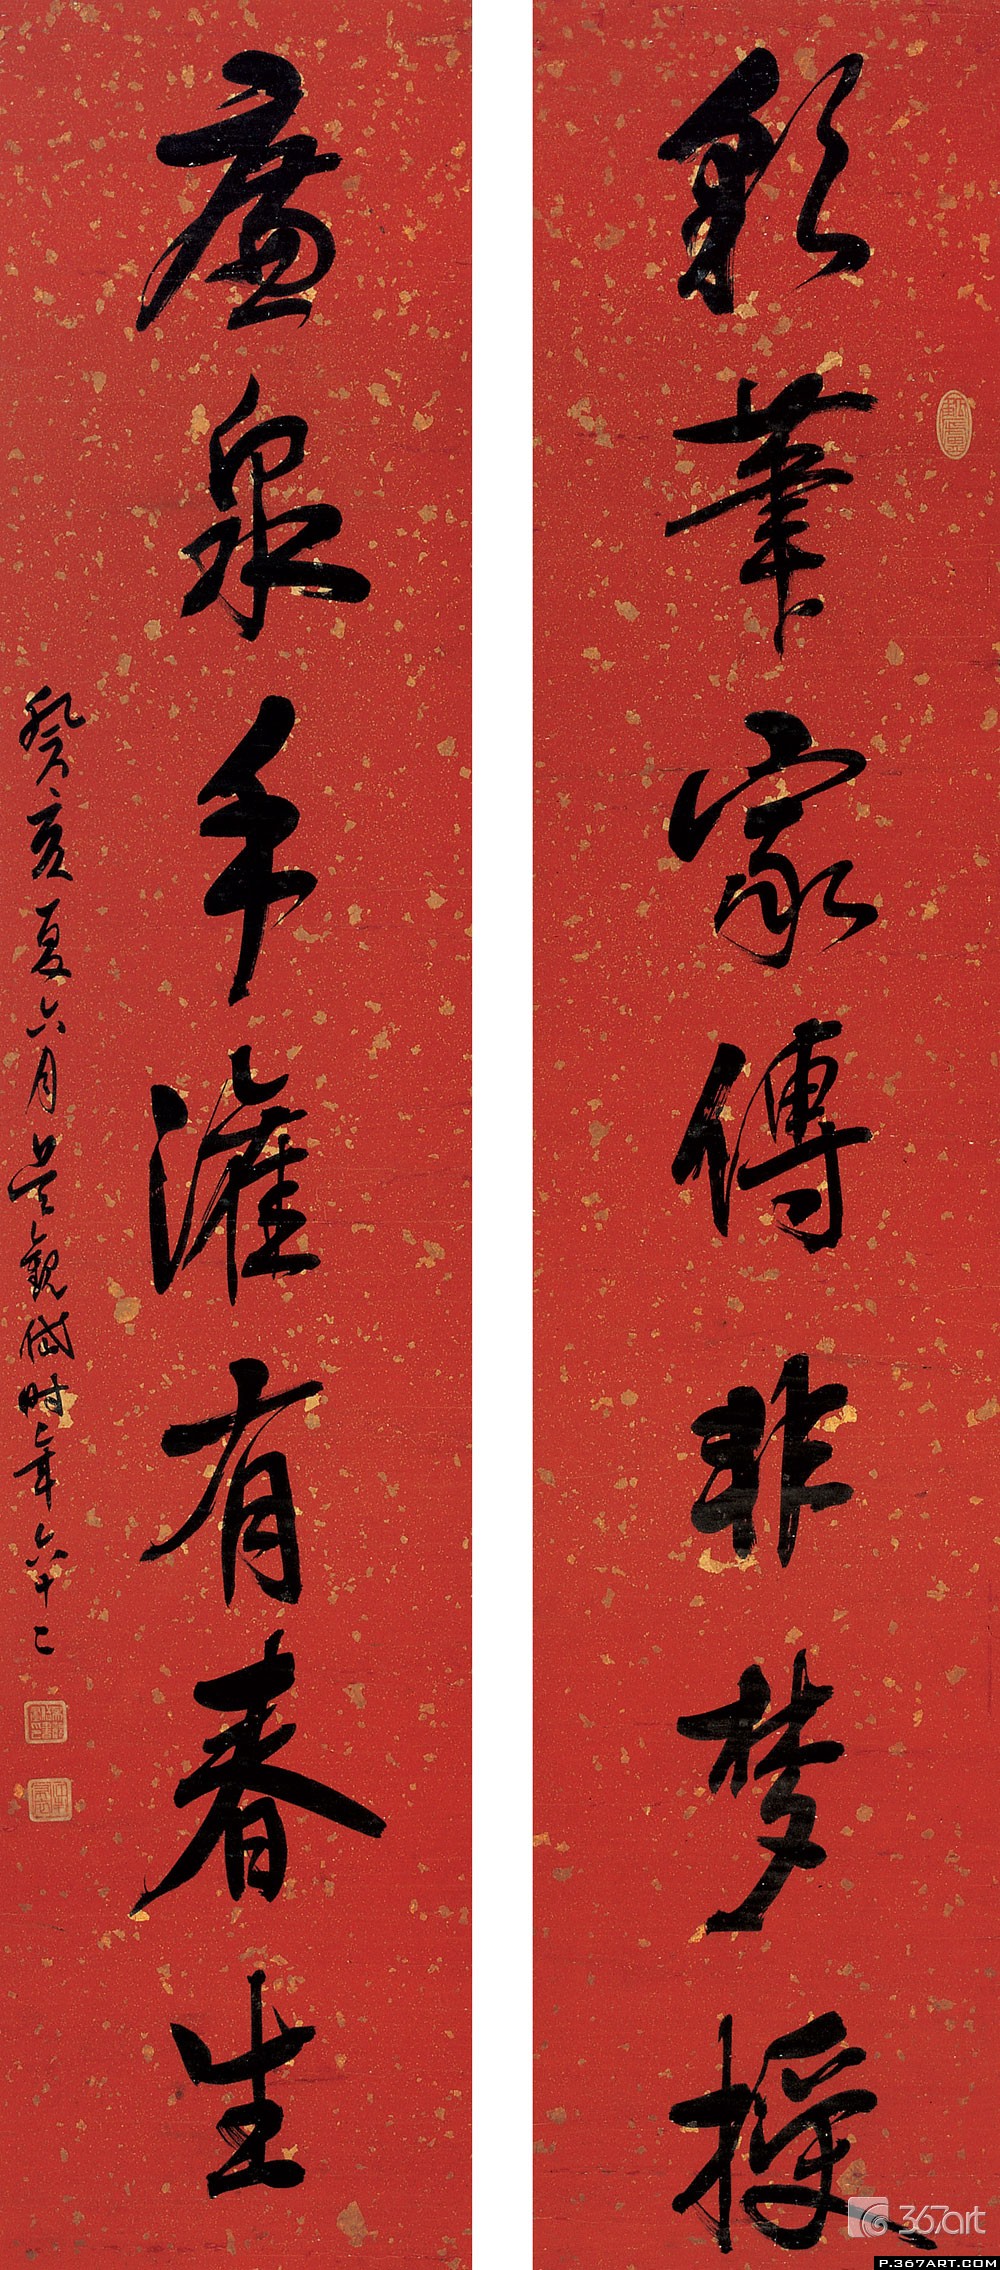 彩筆家傳非梦授
廉泉手灌有春生
癸亥夏六月吴觀岱时年六十二
367art
P.367ART.COM